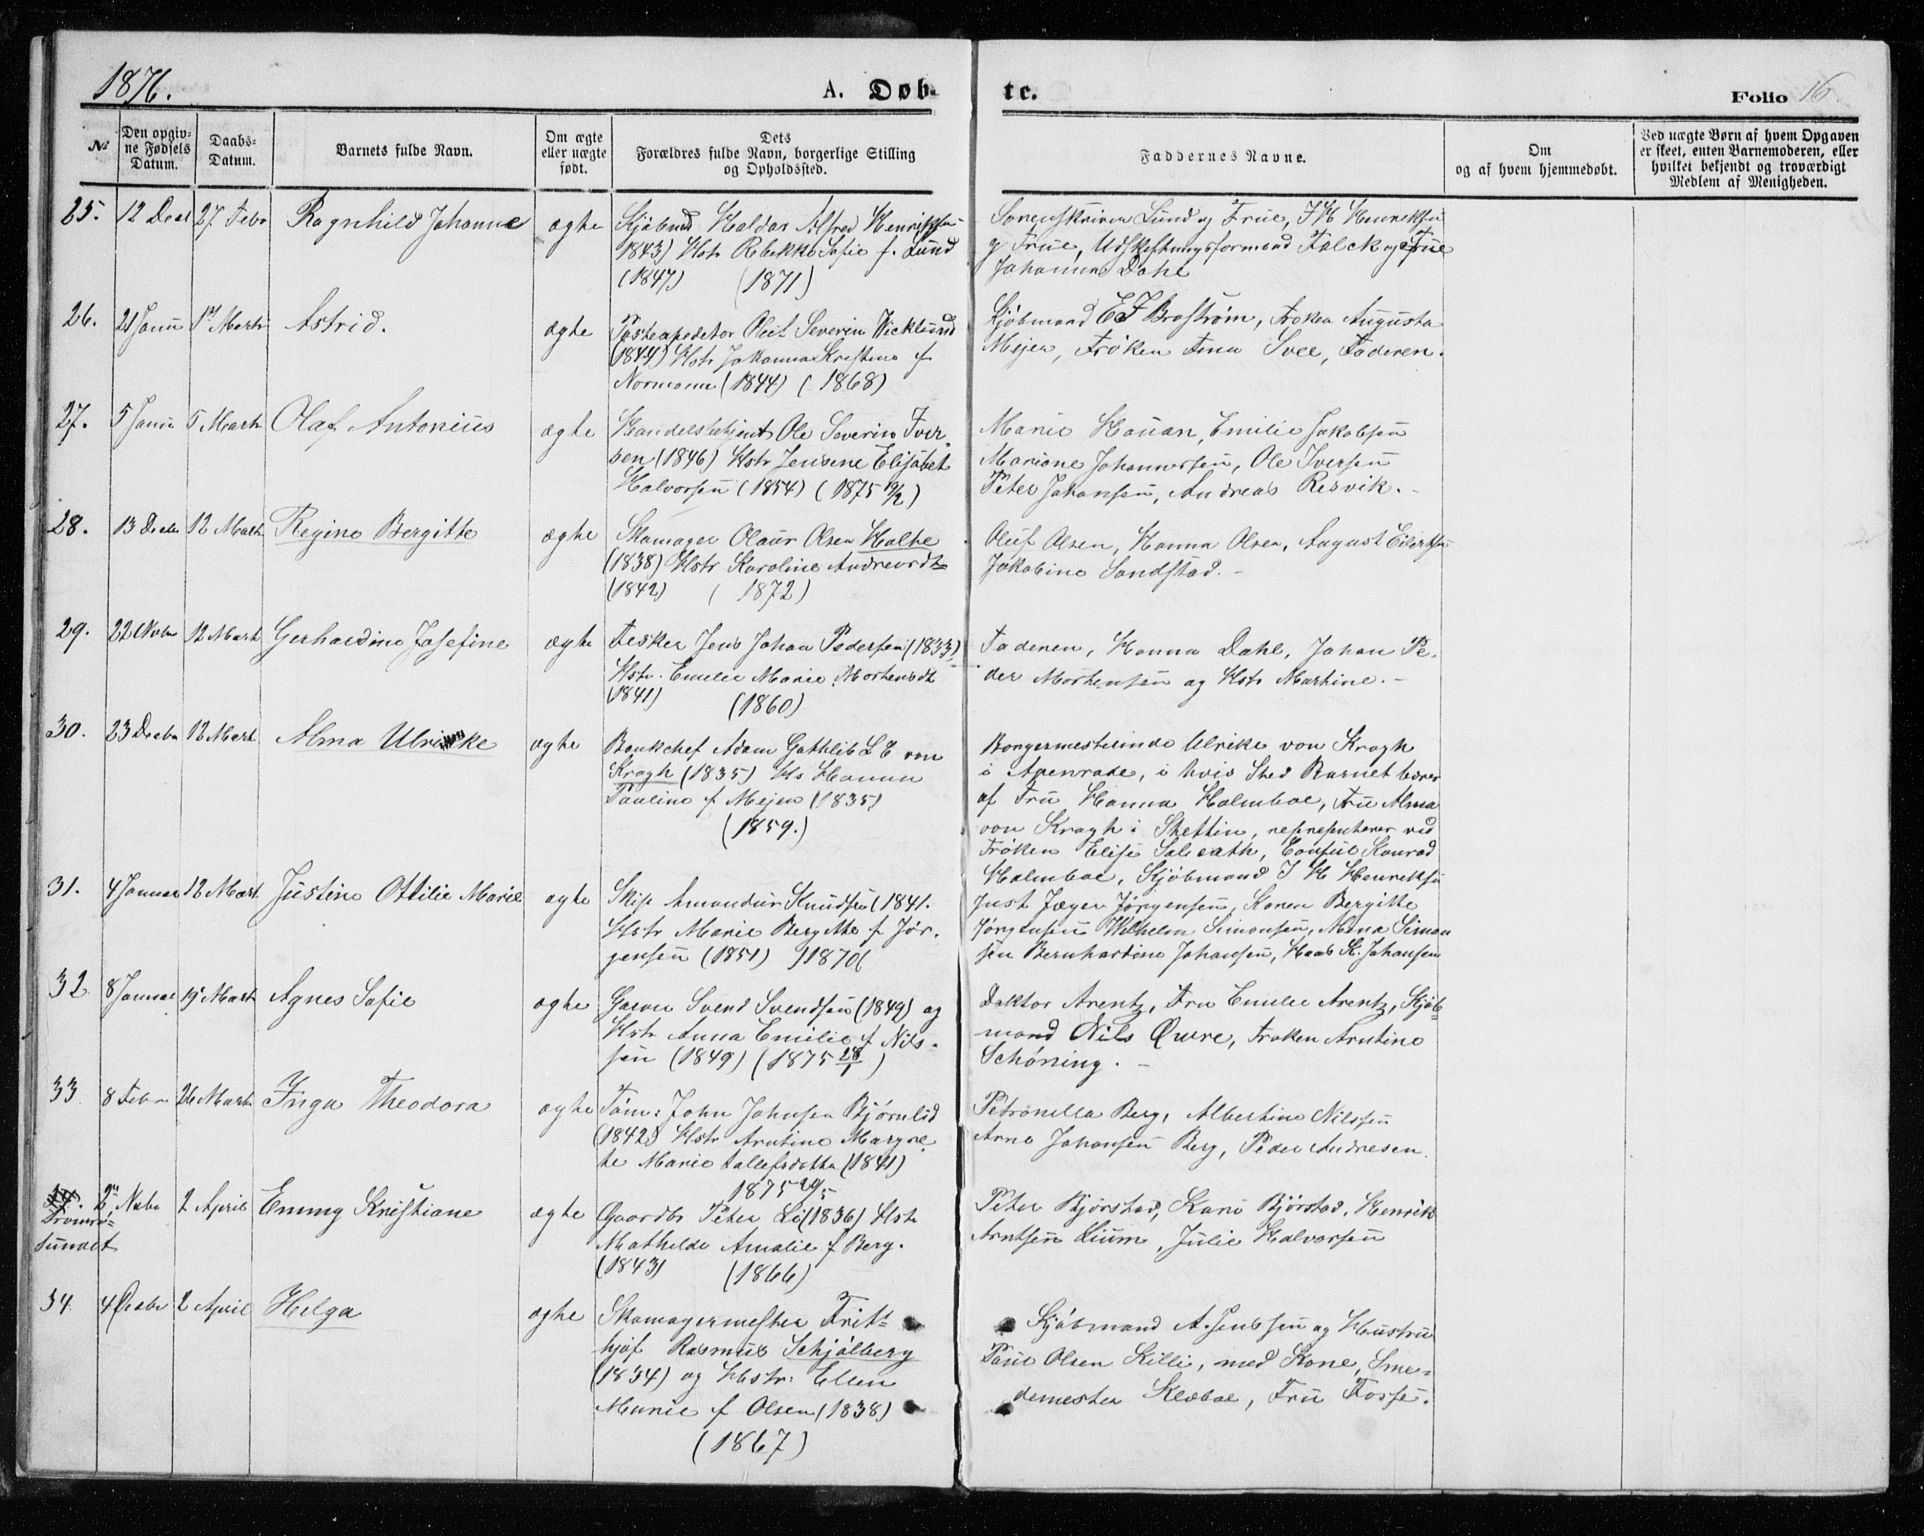 1876.
A. Døb-
te.
Folio 16.
No
Den opgiv-
ne Fødsels
Datum.
Daabs-
Datum.
Barnets fulde Navn.
Om ægte
eller uægte
født.
Dets
Forældres fulde Navn, borgerlige Stilling
og Opholdssted.
Faddernes Navne.
Om
og af hvem hjemmedøbt.
Ved uægte Børn af hvem Opgaven
er skeet, enten Barnemoderen, eller
hvilket bekjendt og troværdigt
Medlem af Menigheden.
25. 12 Decb 27 Febr Ragnhild Johanne ægte Kjøbmd Haldor Alfred Henriksen
1843) Hstr Rebekka Sofie f. Lund
(1847) (1871)
Sorenskriver Lund og Frue, J H Henriksen
og Frue, Udskiftningsformand Falck og Frue
Johanna Dahl
26. 21 Janu 1st Marts Astrid. ægte Postexpeditør Oluf Severin Wicklund
(1844) Hstr Johanna Kristine f
Normann (1844) (1868)
Kjøbmand E F Brostrøm, Frøken Augusta
Mejer, Frøken Tina Svee, Faderen.
27. 5 Janu 5 Marts Olaf Antonius ægte Handelsbetjent Ole Severin Iver-
sen (1846) Hstr Jensine Elisabet
Halvorsen (1854) (1875 19/2)
Marie Hauan, Emilie Jakobsen
Mariane Johannessen, Ole Iversen
Peter Johansen, Andreas Resvik. -
28. 13 Decbr 12 Marts Regine Bergitte ægte Skomager Olaus Olsen Holte
(1838) Hstr Karoline Andreasdt
(1842) (1872)
Oluf Olsen, Hanna Olsen, August Eilertsen
Jakobine Sandstad. -
29. 22 Novbr 12 Mart Gerhardine Josefine ægte Fisker Jens Johan Pedersen (1833)
Hstr. Emilie Marie Mortensdt
(1841) (1860)
Faderen, Hanna Dahl, Johan Pe-
der Mortensen og Hstr Martine. -
30. 23 Decbr 12 Mart Alma Ulrikke ægte Bankchef Adam Gothlib L E von
Krogh (1835) Hs Hanna
Pauline f Mejer (1835)
(1859.)
Borgermesterinde Ulrike von Krogh
i Apenrade, i hvis Sted Barnet bæres
af Fru Hanna Holmboe, Fru Alma
von Krogh i Stettin, repræsenteres ved
Frøken Elise Salcath, Consul Konrad
Holmboe, Kjøbmand J H Henriksen
31. 4 Januar 12 Mart Justine Ottilie Marie ægte Skip Amandus Knudsen (1841.
Hstr Marie Bergitte f Jør-
gensen (1851) (1870)
Just Jæger Jørgensen, Karen Bergitte
Jørgensen Wilhelm Simonsen, Alma Simon
sen Bernhardine Johansen, Haab K. Johansen
32 8 Januar 19 Mart Agnes Sofie ægte Garver Svend Svendsen (1849) og
Hstr Anna Emilie f Nils-
sen (1849) (1875 28/1)
Doktor Arentz, Fru Emilie Arentz, Kjøb-
mand Nils Qvære, Frøken Arntine
Schøning. -
33 8 Febr 26 Marts Inga Theodora ægte Tøm: John Johnsen Bjørnlid
(1842) Hstr Arntine Margre-
te Marie tollefsdatter (1841)
1875 29/5
Petronilla Berg, Albertine Nilssen
Arne Johansen Berg, Peder Andresen.
Tromsø-
sundet
2 Novbr 2 April Emmy Kristiane ægte Gaardbr Peter Li (1836) Hstr
Mathilde Amalie f Berg.
(1843) (1866)
Peter Bjørstad, Karie Bjørstad, Henrik
Arntsen Lium, Julie Halvorsen
34. 4 Decbr 2 April Helga ægte Skomagermester Frit-
hjof Rasmus Schjølberg
(1834) og Hstr: Ellen
Marie f Olsen (1838)
(1867)
Kjøbmand A. Jenssen og Hustru
Paul Olsen Killi, med Kone, Sme-
demester Klæboe, Fru Fosse.